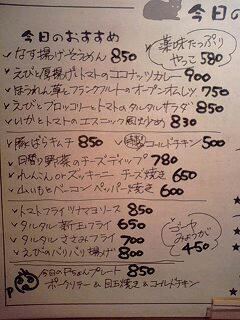 今日の
今日のおすすめ
なす揚げそうめん 850
えびと厚揚げトマトのココナッツカレー 900
ほうれん草とフランクフルトのオープンオムレツ 750
えびとブロッコリーとトマトのタルタルサラダ 850
いかとトマトのエスニック風炒め 830
薬味たっぷり
やっこ 580
豚ばらキムチ 850
コールドチキン 500
日替り野菜のチーズディップ 780
れんこん or ズッキーニ チーズ焼き 650
山いもとベーコン ペッパー焼き 600
トマトフライ ツナマヨソース 850
タルタル 新玉フライ 650
タルタル ささみフライ 700
えびのパリパリ揚げ 800
ゴーヤ
みょうが
450
今日のPちゃんプレート 850
ポークソテー & 目玉焼き & コールドチキン
P